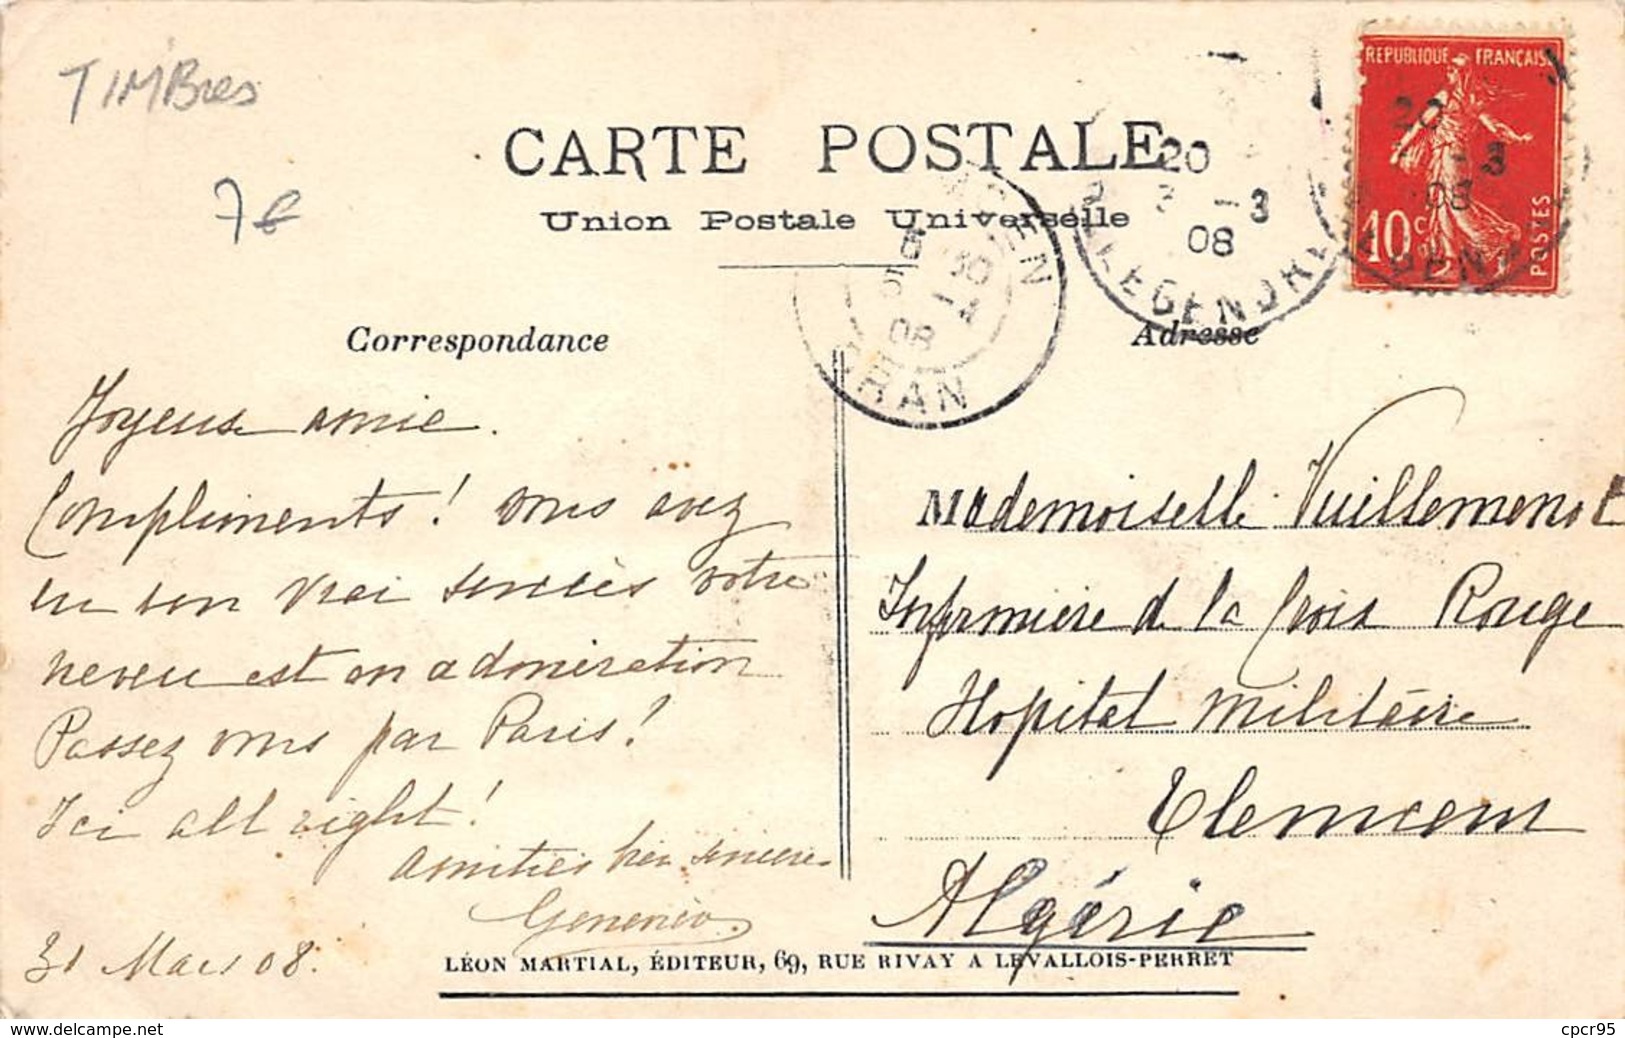 TIMBres
7€
CARTE POSTALE
Union Postale Universelle
REPUBLIQUE FRANÇAISE
10 c
POSTES
20
3 -3
08
20
-3
08
30
08
ORAN
Correspondance
Adresse
Joyeuse amie.
Compliments! vous avez
eu bon vrai succès votre
neveu est en admiration
Passez vous par Paris!
Ici all right!
amitiés bien sincères
31 Mars 08.
Mademoiselle Vuillemenot
Infirmière de la Croix Rouge
Hopital Militaire
Tlemcem
Algérie
LÉON MARTIAL, ÉDITEUR, 69, RUE RIVAY A LEVALLOIS-PERRET
www.delcampe.net
cpcr95